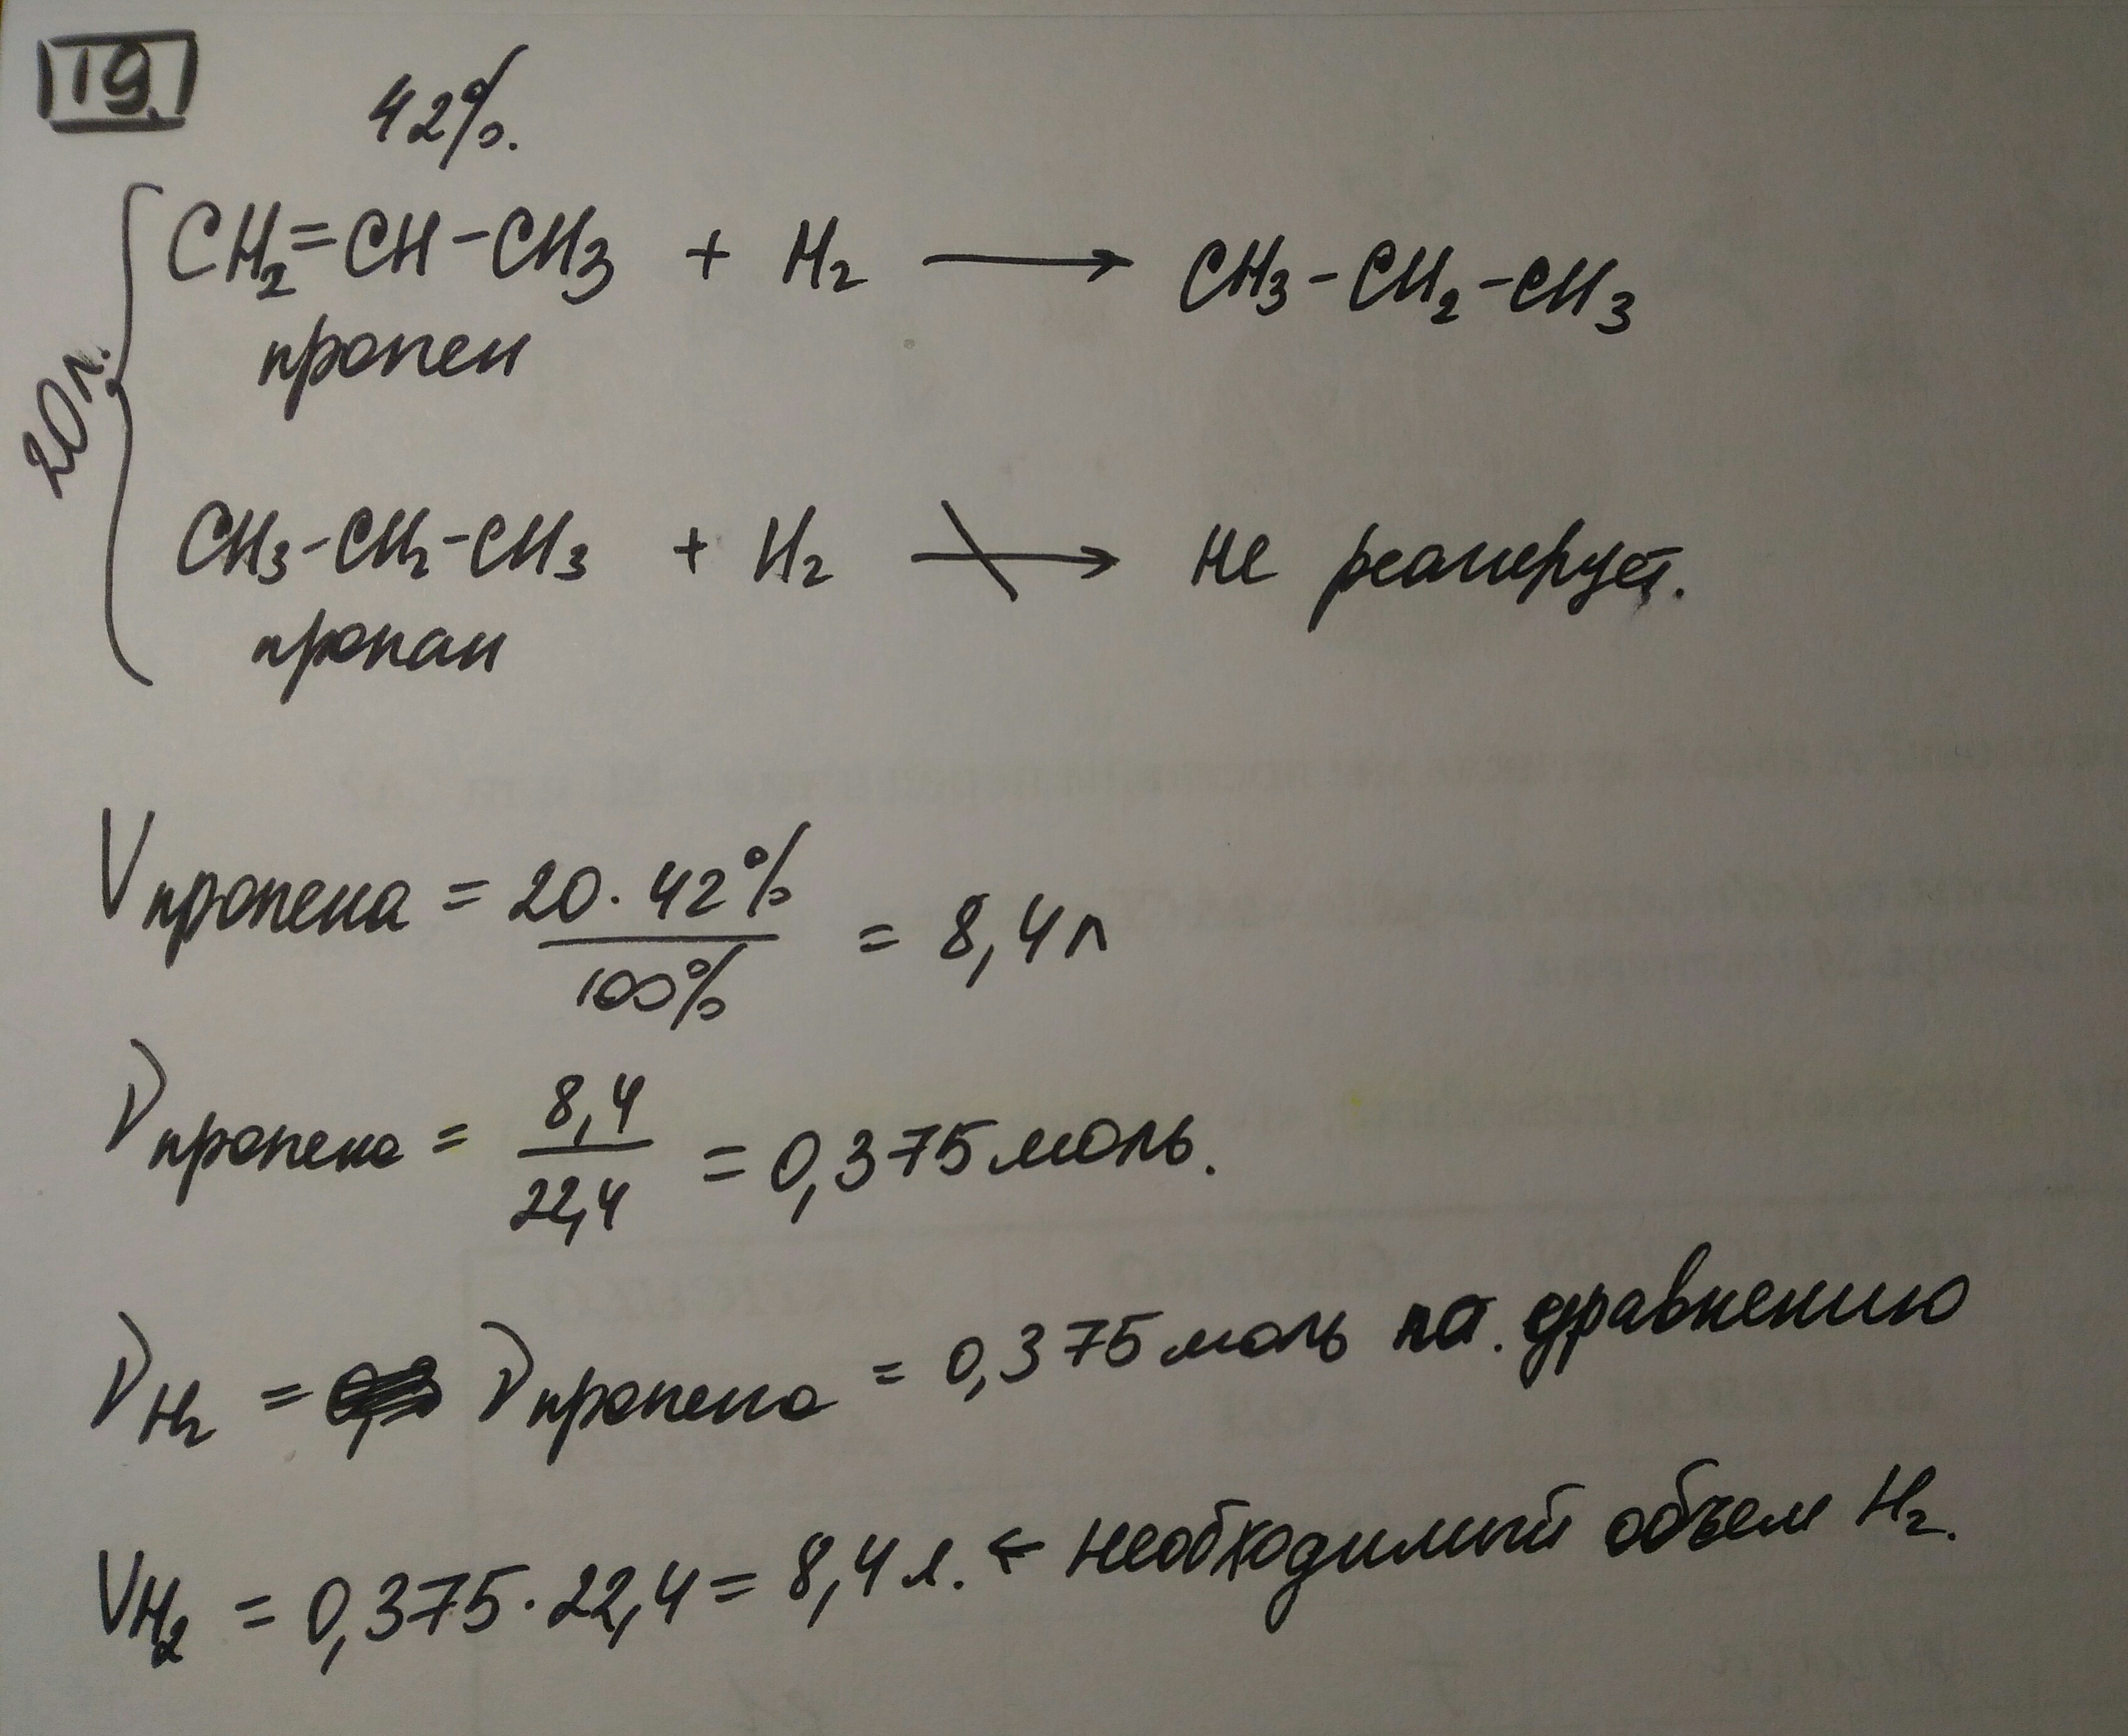 19.
42%.
CH₂=CH-CH₃ + H₂ → CH₃-CH₂-CH₃
пропен
20 л.
CH₃-CH₂-CH₃ + H₂ ↛ не реагирует.
пропан
Vпропена = 20 · 42% / 100% = 8,4 л
νпропена = 8,4 / 22,4 = 0,375 моль.
νH₂ = νпропена = 0,375 моль по уравнению
VH₂ = 0,375 · 22,4 = 8,4 л. ← необходимый объем H₂.